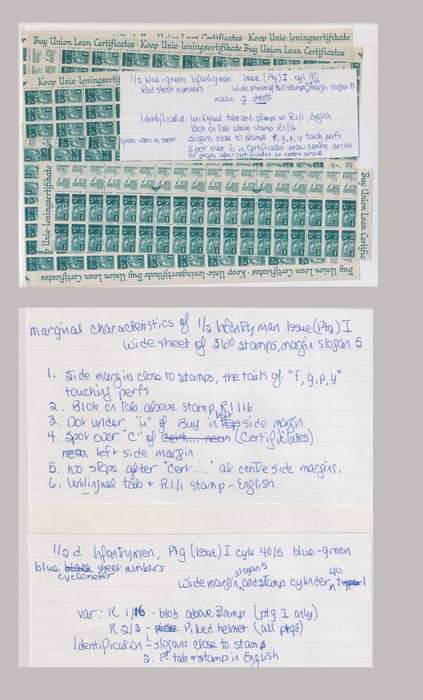 Buy Union Loan Certificates · Koop Unie-leningsertifikate
Buy Union Loan Certificates · Koop Unie-leningsertifikate Buy Union Loan Certificates
Koop Unie-leningsertifikate
1/2 blue-green Infantryman Issue (Ptg) I cyl 40
Red sheet numbers wide sheet of 360 stamps, margin slogan 5
make 2 sheets
Identification: unilingual tab and stamp at R1/1 English
Blob on Tab above stamp R1/16
slogans close to stamps f, g, p, y touch perfs
Spot over "c" in certificates
no stops after certificates at centre
Buy Union Loan Certificates
Unie-leningsertifikate
Buy Union Loan Certificates · Koop Unie-leningsertifikate · Buy Union Loan Certificates
marginal characteristics of 1/2 Infantryman Issue (Ptg) I
wide sheet of 360 stamps, margin slogan 5
1. Side margins close to stamps, the tails of "f, g, p, y"
touching perfs
2. Blob on Tab above stamp R1/16
3. Dot under "u" of Buy in left side margin
4. Spot over "C" of (Certificates)
left side margin
5. no stops after "Cert....." at centre side margins.
6. Unilingual tab + R1/1 stamp - English
1/2 d Infantrymen, Ptg (Issue) I cyls 40/5 blue-green
blue black sheet numbers
cyclometer
slogan 5 40
wide margin, and stamp cylinder
var: R 1/16 - blob above Stamp (ptg I only)
R 2/3 - Piked helmet (all ptgs)
Identification 1 - slogans close to stamp
2. 1st tab + stamp in English